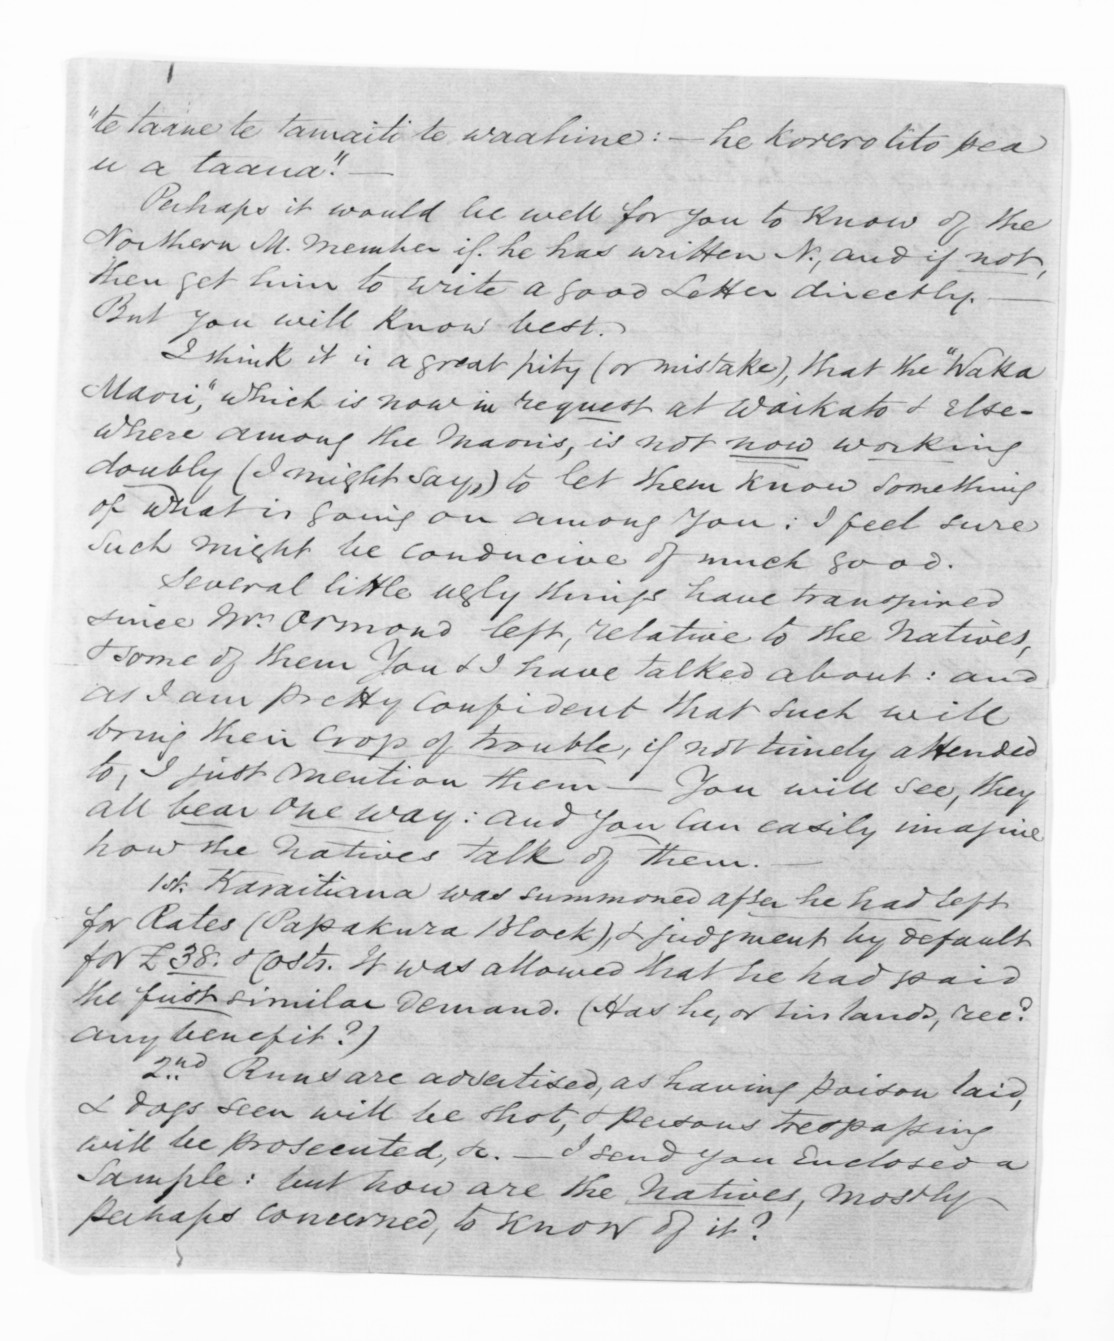 "te taane te tamaiti te waahine: — he korero tito pea
u a taana". —
Perhaps it would be well for you to know of the
Northern M. member if he has written N., and if not,
then get him to write a good Letter directly. —
But you will know best.
I think it is a great pity (or mistake), that the "Waka
Maori," which is now in request at Waikato & else-
where among the Maoris, is not now working
doubly (I might say,) to let them know something
of what is going on among You: I feel sure
such might be conducive of much good.
Several little ugly things have transpired
since Mr. Ormond left, relative to the Natives,
& some of them You & I have talked about: and
as I am pretty confident that such will
bring their crop of trouble, if not timely attended
to, I just mention them — You will see, they
all bear one way: and you can easily imagine
how the Natives talk of them. —
1st. Karaitiana was summoned after he had left
for Rates (Papakura Block), & judgment by default
for £38. & Costs. It was allowed that he had paid
the first similar demand. (Has he, or his lands, rec?
any benefit?)
2nd Runs are advertised, as having poison laid,
& dogs seen will be shot, & persons trespassing
will be prosecuted, &c. — I send you Enclosed a
Sample: but how are the Natives, mostly
perhaps concerned, to know of it?